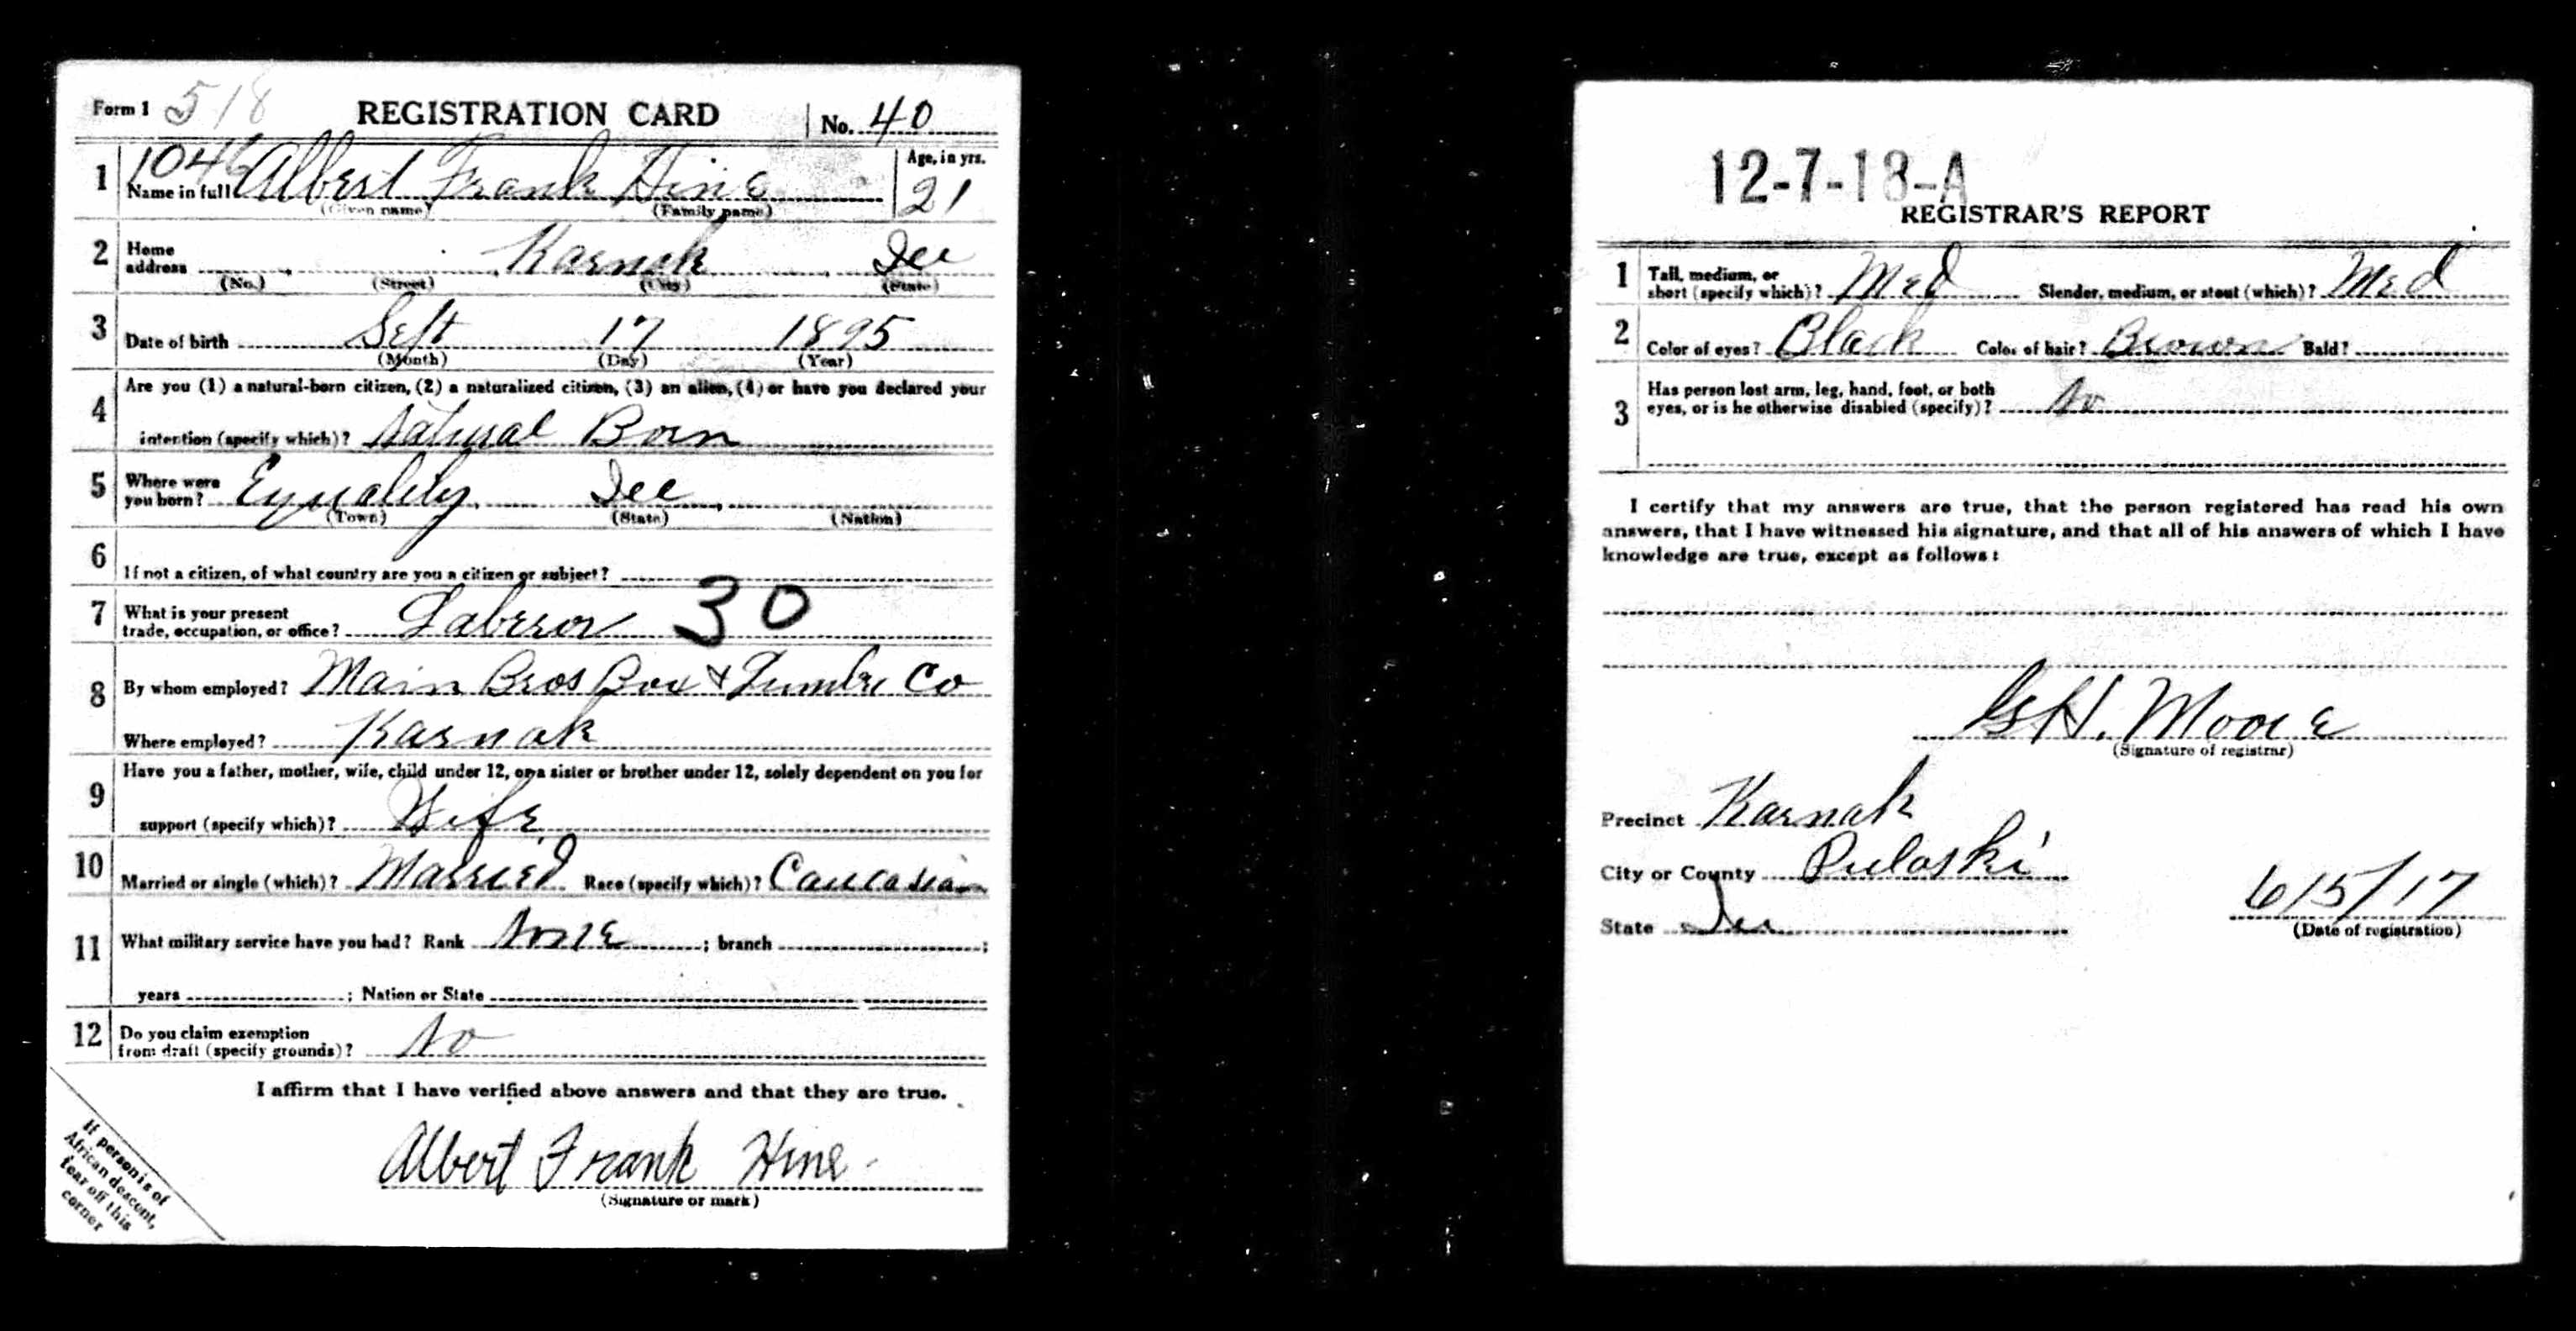 Form 1 518 REGISTRATION CARD No. 40
1 1046 Name in full Albert Frank Hine Age, in yrs. 21
(Given name) (Family name)
2 Home address Karnak Ill
(No.) (Street) (City) (State)
3 Date of birth Sept 17 1895
(Month) (Day) (Year)
4 Are you (1) a natural-born citizen, (2) a naturalized citizen, (3) an alien, (4) or have you declared your
intention (specify which)? Natural Born
5 Where were you born? Equality Ill
(Town) (State) (Nation)
6 If not a citizen, of what country are you a citizen or subject?
7 What is your present trade, occupation, or office? Laberor 30
8 By whom employed? Main Bros Box & Lumber Co
Where employed? Karnak
9 Have you a father, mother, wife, child under 12, or a sister or brother under 12, solely dependent on you for
support (specify which)? Wife
10 Married or single (which)? Married Race (specify which)? Caucasian
11 What military service have you had? Rank None ; branch ;
years ; Nation or State
12 Do you claim exemption from draft (specify grounds)? No
I affirm that I have verified above answers and that they are true.
Albert Frank Hine
(Signature or mark)
If person is of
African descent,
tear off this
corner
12-7-18-A
REGISTRAR'S REPORT
1 Tall, medium, or short (specify which)? Med Slender, medium, or stout (which)? Med
2 Color of eyes? Black Color of hair? Brown Bald?
3 Has person lost arm, leg, hand, foot, or both
eyes, or is he otherwise disabled (specify)? No
I certify that my answers are true, that the person registered has read his own
answers, that I have witnessed his signature, and that all of his answers of which I have
knowledge are true, except as follows:
GH. Moore
(Signature of registrar)
Precinct Karnak
City or County Pulaski
State Ill
6/5/17
(Date of registration)